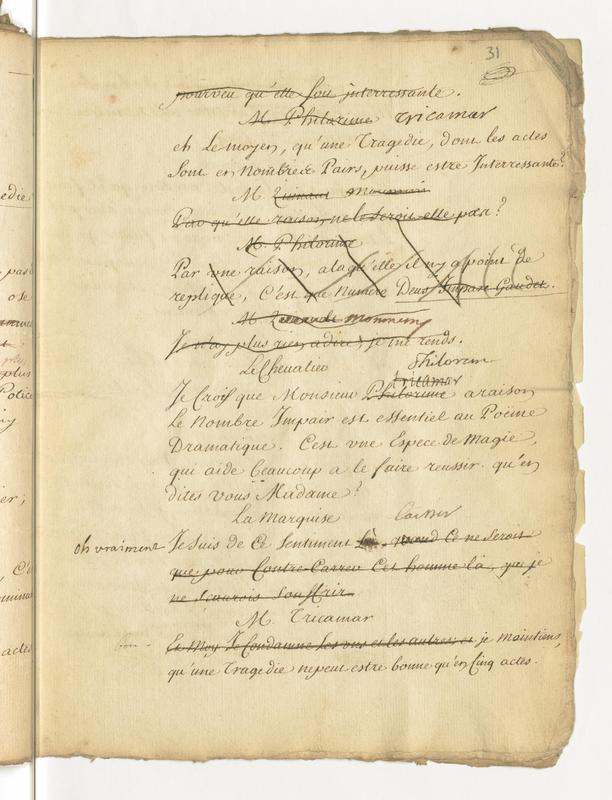 31
pourveu qu'elle soit interressante.
M. Philorime Tricamar
eh Le moyen, qu'une Tragedie, dont les actes
Sont en Nombres Pairs, puisse estre Interressante?
M.
Par qu'elle raison, ne le seroit elle pas?
M. Philorime
Par une raison, a laqu'elle il n'y a point de
replique, C'est que Numero Deus Impare Gaudet.
M.
Je n'ay plus rien a dire; je me rends.
Le Chevalier Philorime
tricamar
Je Crois que Monsieur Philorime a raison
Le Nombre Impair est essentiel au Poëme
Dramatique. C'est une Espece de Magie,
qui aide beaucoup a le faire reussir. qu'en
dites vous Madame?
La Marquise
oh vraiment Je suis de Ce Sentiment quand Ce ne seroit
que pour Contre-Carrer Cet homme là, que je
ne sçaurois Souffrir.
M. Tricamar
Et Moy Je Condamne Les uns et les autres, et je maintiens,
qu'une Tragedie ne peut estre bonne qu'en Cinq actes.